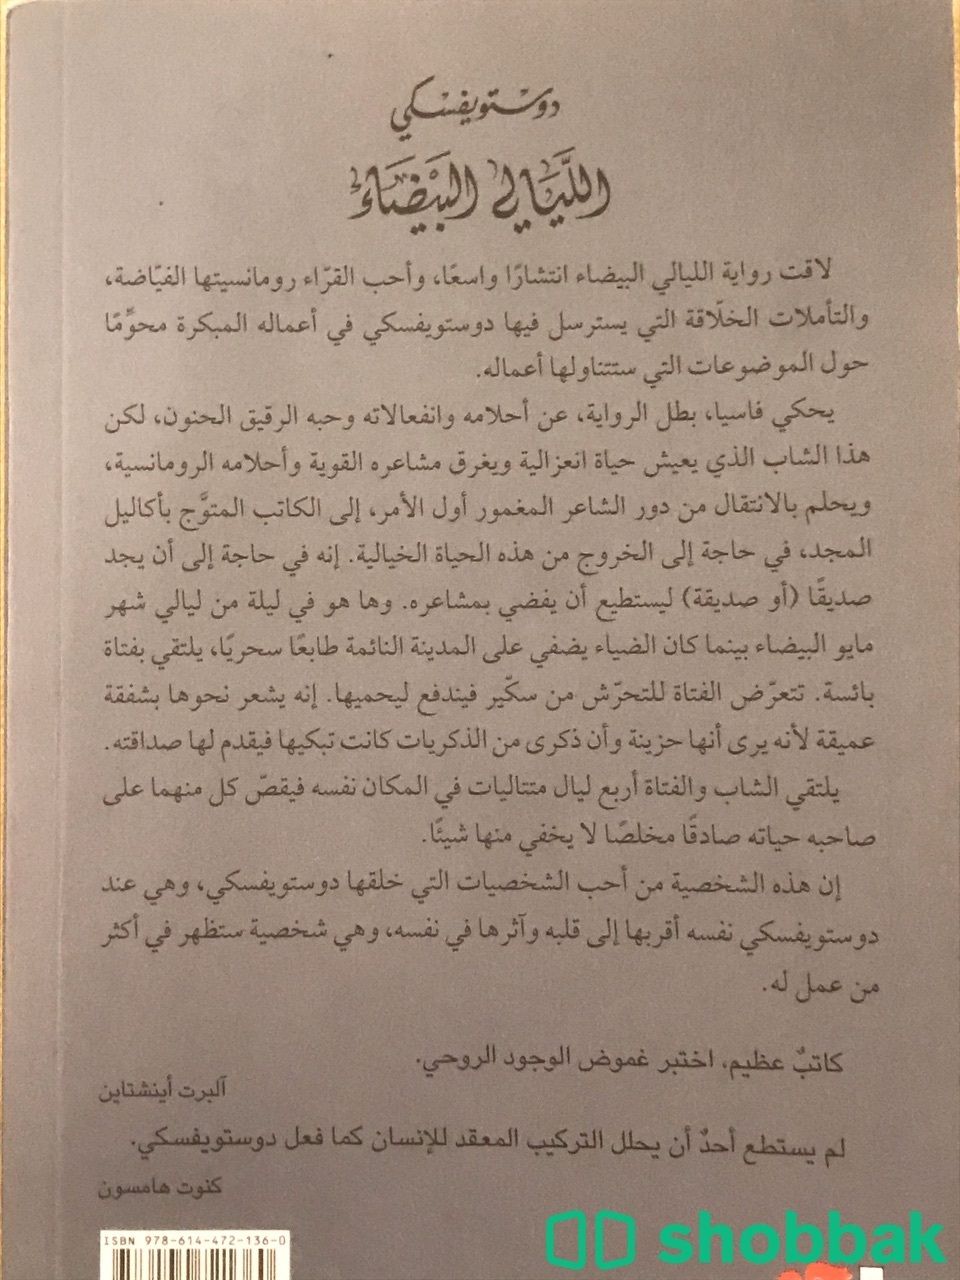 دوستويفسكي
اللَّيَالي البَيضَاءُ
لاقت رواية الليالي البيضاء انتشارًا واسعًا، وأحب القرّاء رومانسيتها الفيّاضة،
والتأملات الخلّاقة التي يسترسل فيها دوستويفسكي في أعماله المبكرة محوِّمًا
حول الموضوعات التي ستتناولها أعماله.
يحكي فاسيا، بطل الرواية، عن أحلامه وانفعالاته وحبه الرقيق الحنون، لكن
هذا الشاب الذي يعيش حياة انعزالية ويغرق مشاعره القوية وأحلامه الرومانسية،
ويحلم بالانتقال من دور الشاعر المغمور أول الأمر، إلى الكاتب المتوَّج بأكاليل
المجد، في حاجة إلى الخروج من هذه الحياة الخيالية. إنه في حاجة إلى أن يجد
صديقًا (أو صديقة) ليستطيع أن يفضي بمشاعره. وها هو في ليلة من ليالي شهر
مايو البيضاء بينما كان الضياء يضفي على المدينة النائمة طابعًا سحريًا، يلتقي بفتاة
بائسة. تتعرّض الفتاة للتحرّش من سكّير فيندفع ليحميها. إنه يشعر نحوها بشفقة
عميقة لأنه يرى أنها حزينة وأن ذكرى من الذكريات كانت تبكيها فيقدم لها صداقته.
يلتقي الشاب والفتاة أربع ليال متتاليات في المكان نفسه فيقصّ كل منهما على
صاحبه حياته صادقًا مخلصًا لا يخفي منها شيئًا.
إن هذه الشخصية من أحب الشخصيات التي خلقها دوستويفسكي، وهي عند
دوستويفسكي نفسه أقربها إلى قلبه وآثرها في نفسه، وهي شخصية ستظهر في أكثر
من عمل له.
كاتبٌ عظيم، اختبر غموض الوجود الروحي.
آلبرت أينشتاين
لم يستطع أحدٌ أن يحلل التركيب المعقد للإنسان كما فعل دوستويفسكي.
كنوت هامسون
ISBN 978-614-472-136-0
shobbak